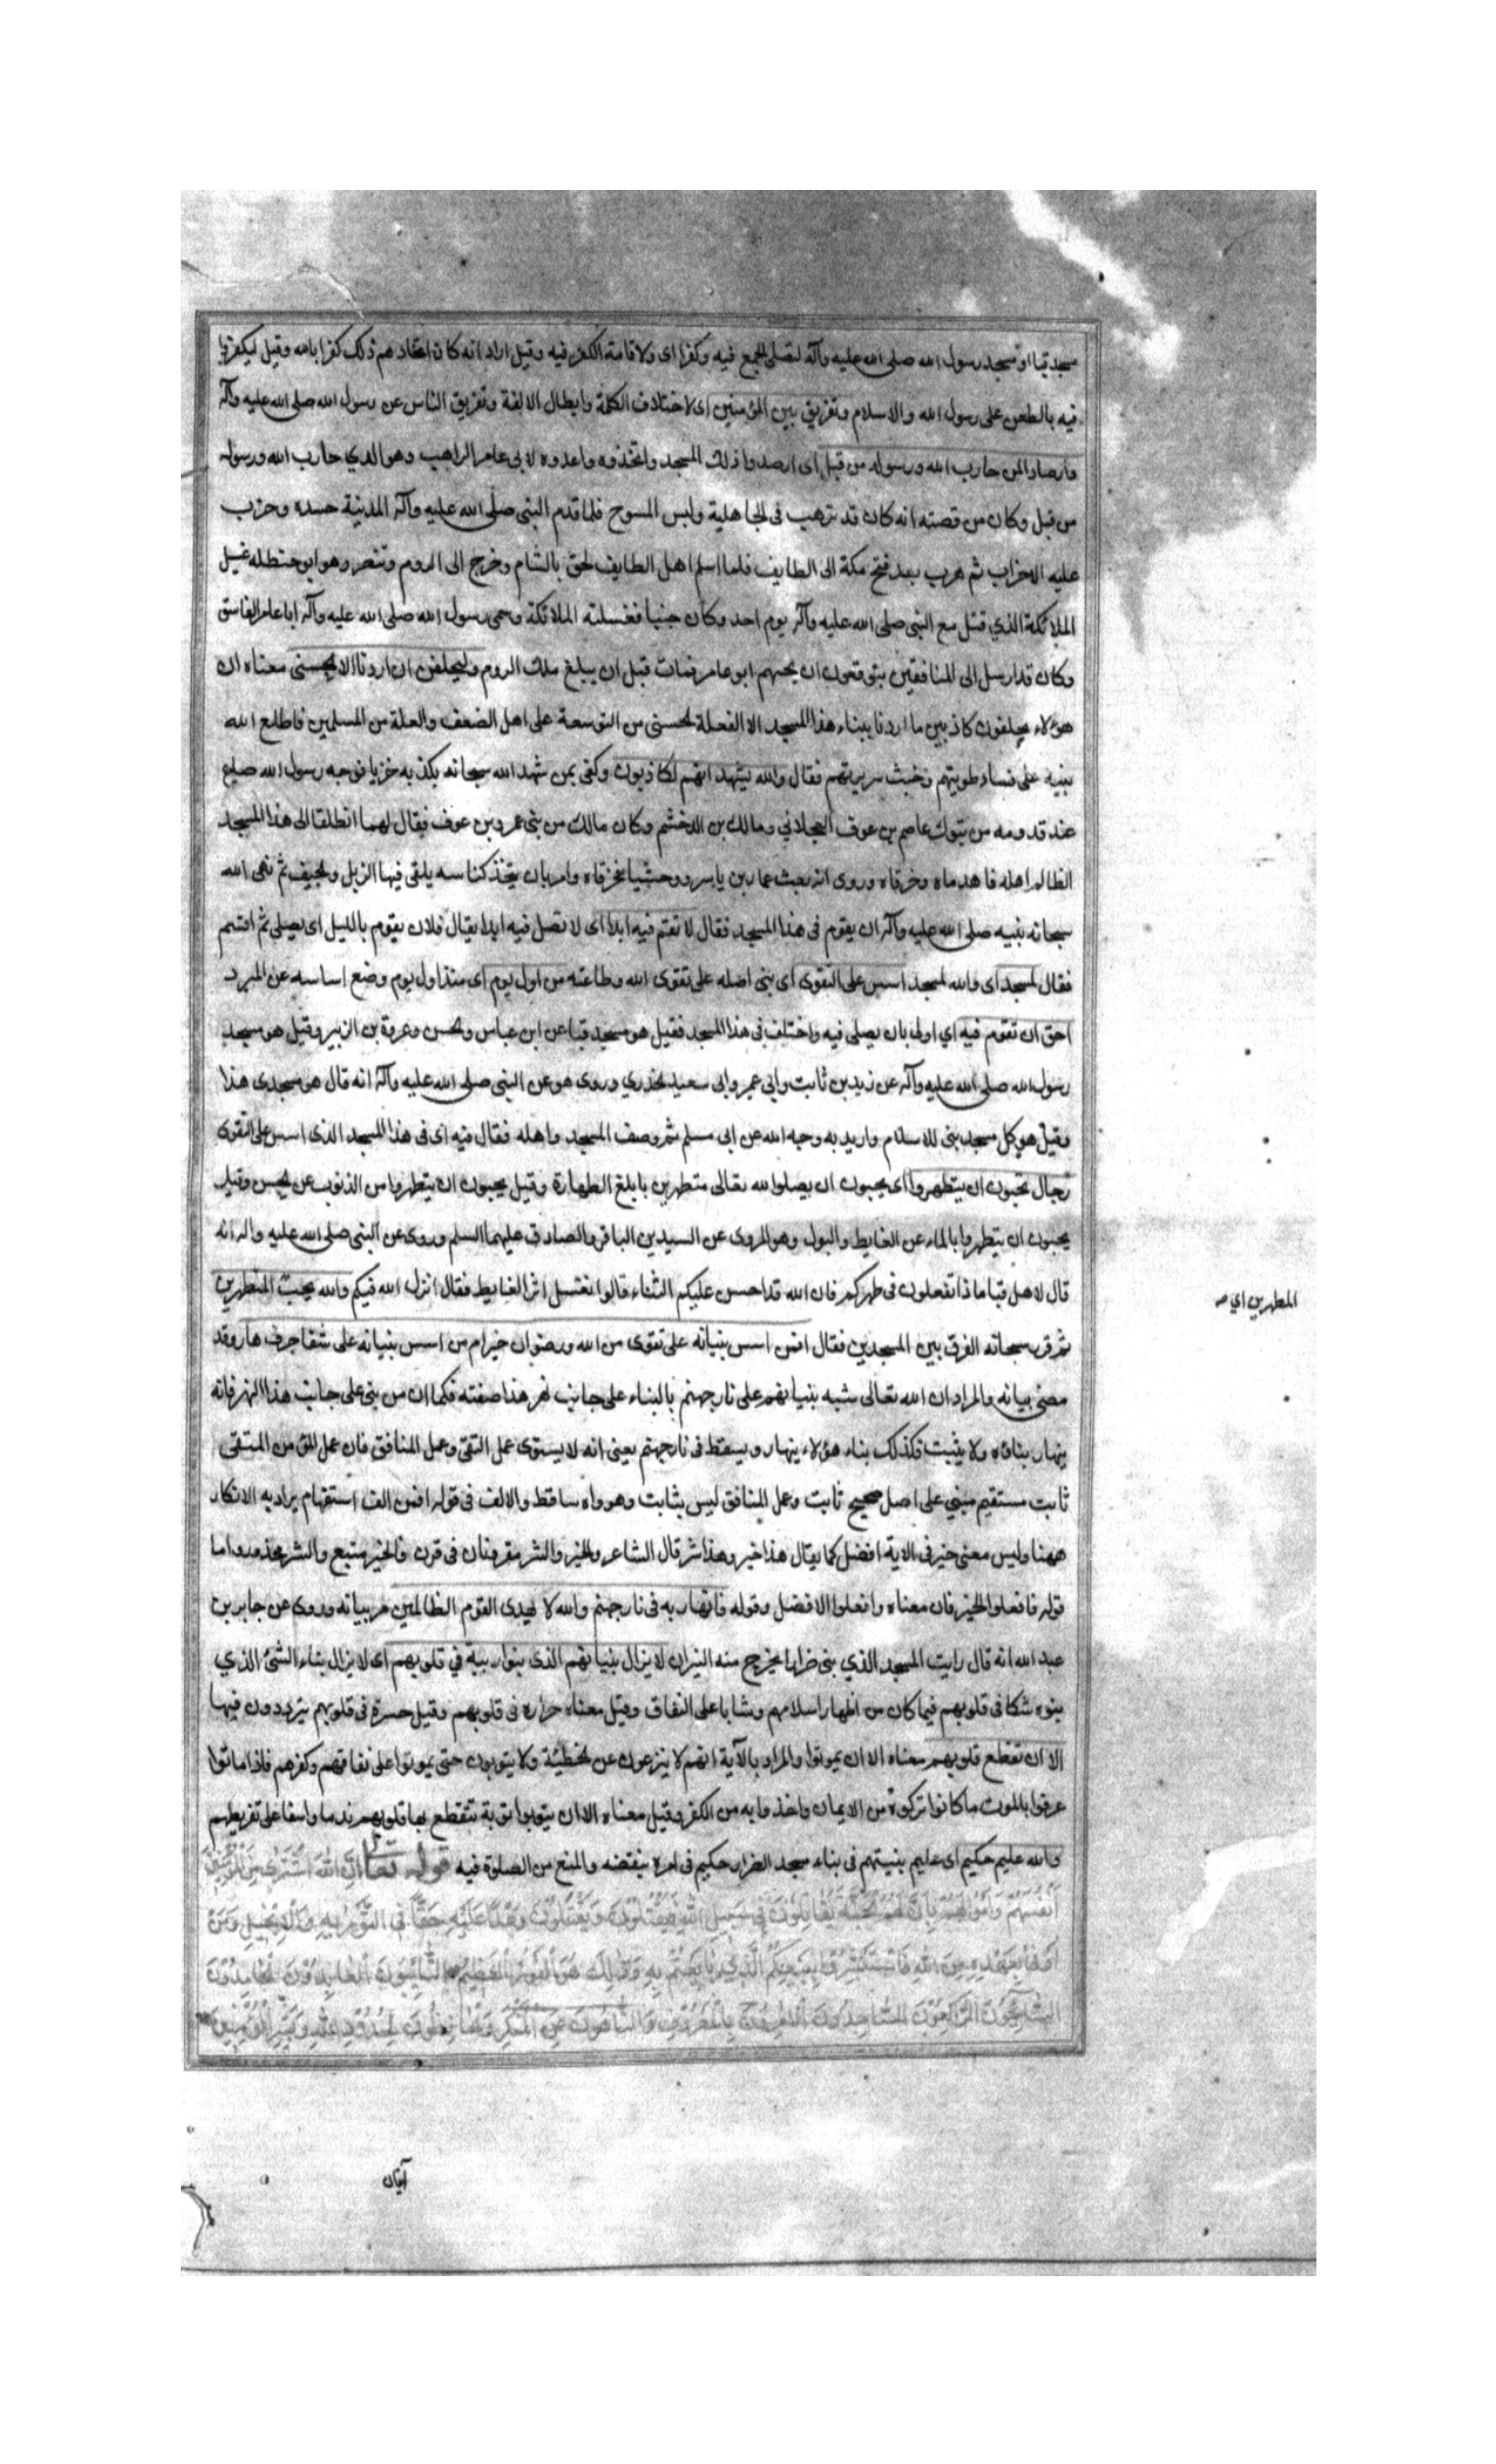 مسجد قبا او مسجد رسول الله صلى الله عليه وآله لتقليل الجمع فيه وكفرا اى ولاقامة الكفر فيه وقيل اراد انه كان اتخاذهم ذلك كفرا بالله وقيل ليكفروا
فيه بالطعن على رسول الله والاسلام وتفريق بين المؤمنين اى لاختلاف الكلمة وابطال الالفة وتفريق الناس عن رسول الله صلى الله عليه وآله
وارصادا لمن حارب الله ورسوله من قبل اى ارصدوا ذلك المسجد واتخذوه واعدوه لابى عامر الراهب وهو الذي حارب الله ورسوله
من قبل وكان من قصته انه كان قد ترهب فى الجاهلية ولبس المسوح فلما قدم النبى صلى الله عليه وآله المدينة حسده وحزب
عليه الاحزاب ثم هرب بعد فتح مكة الى الطايف فلما اسلم اهل الطايف لحق بالشام وخرج الى الروم وتنصر وهو ابو حنظله غسيل
الملائكة الذي قتل مع النبى صلى الله عليه وآله يوم احد وكان جنبا فغسلته الملائكة وسمى رسول الله صلى الله عليه وآله ابا عامر الفاسق
وكان قد ارسل الى المنافقين يتوقعون ان يجيهم ابو عامر فمات قبل ان يبلغ ملك الروم وليحلفن ان اردنا الا الحسنى معناه ان
هؤلاء يحلفون كاذبين ما اردنا ببناء هذا المسجد الا الفعلة الحسنى من التوسعة على اهل الضعف والعلة من المسلمين فاطلع الله
نبيه على فساد طويتهم وخبث سريرتهم فقال والله يشهد انهم لكاذبون وكفى بمن شهد الله سبحانه بكذبه خزيا فوجه رسول الله صلع
عند قدومه من تبوك عاصم بن عوف العجلاني ومالك بن الدخشم وكان مالك من بنى عمرو بن عوف فقال لهما انطلقا الى هذا المسجد
الظالم اهله فاهدماه وحرقاه وروى انه بعث عمار بن ياسر ووحشيا فحرقاه وامر بان يتخذ كناسه يلقى فيها الزبل والجيف ثم نهى الله
سبحانه نبيه صلى الله عليه وآله ان يقوم فى هذا المسجد فقال لا تقم فيه ابدا اى لا تصل فيه ابدا يقال فلان يقوم بالليل اى يصلى ثم اقسم
فقال لمسجد اى والله لمسجد اسس على التقوى اى بنى اصله على تقوى الله وطاعته من اول يوم اى منذ اول يوم وضع اساسه عن المبرد
احق ان تقوم فيه اي اولى بان يصلى فيه واختلف فى هذا المسجد فقيل هو مسجد قبا عن ابن عباس والحسن وعروة بن الزبير وقيل هو مسجد
رسول الله صلى الله عليه وآله عن زيد بن ثابت وابى عمر وابى سعيد الخدري وروى هو عن النبى صلى الله عليه وآله انه قال هو مسجدى هذا
وقيل هو كل مسجد بنى للاسلام واريد به وجه الله عن ابى مسلم ثم وصف المسجد واهله فقال فيه اى فى هذا المسجد الذى اسس على التقوى
رجال يحبون ان يتطهروا اى يحبون ان يصلوا لله تعالى متطهرين بابلغ الطهارة وقيل يحبون ان يتطهروا من الذنوب عن الحسن وقيل
يحبون ان يتطهروا بالماء عن الغايط والبول وهو المروى عن السيدين الباقر والصادق عليهما السلم وروى عن النبى صلى الله عليه واله انه
قال لاهل قبا ماذا تفعلون فى طهركم فان الله قد احسن عليكم الثناء قالوا نغتسل اثر الغايط فقال انزل الله فيكم والله يحب المطهرين
المطهرين اي صـ
ثم قرر سبحانه الفرق بين المسجدين فقال افمن اسس بنيانه على تقوى من الله ورضوان خير ام من اسس بنيانه على شفا جرف هار وقد
مضى بيانه والمراد ان الله تعالى شبه بنيانهم على نار جهنم بالبناء على جانب نهر هذا صفته فكما ان من بنى على جانب هذا النهر فانه
ينهار بناؤه ولا يثبت فكذلك بناء هؤلاء ينهار ويسقط فى نار جهنم يعنى انه لا يستوى عمل التقى وعمل المنافق فان عمل المؤمن المتقى
ثابت مستقيم مبني على اصل صحيح ثابت وعمل المنافق ليس بثابت وهو واه ساقط والالف فى قوله افمن الف استفهام يراد به الانكار
ههنا وليس معنى خير فى الاية افضل كما يقال هذا خير وهذا شر قال الشاعر والخير والشر مقرونان فى قرن فالخير متبع والشر محذور واما
قوله فافعلوا الخير فان معناه وافعلوا الافضل وقوله فانهار به فى نار جهنم والله لا يهدى القوم الظالمين مر بيانه وروى عن جابر بن
عبد الله انه قال رايت المسجد الذي بنى ضرارا يخرج منه النيران لا يزال بنيانهم الذى بنوا ريبة في قلوبهم اى لا يزال بناء الشئ الذي
بنوه شكا فى قلوبهم فيما كان من اظهار اسلامهم وثباتا على النفاق وقيل معناه حراره فى قلوبهم وقيل حسرة فى قلوبهم يترددون فيها
الا ان تقطع قلوبهم معناه الا ان يموتوا والمراد بالآية انهم لا ينزعون عن الخطيئة ولا يتوبون حتى يموتوا على نفاقهم وكفرهم فاذا ماتوا
عرفوا بالموت ما كانوا تركوه من الايمان واخذوا به من الكفر وقيل معناه الا ان يتوبوا توبة تتقطع بها قلوبهم ندما واسفا على تفريطهم
والله عليم حكيم اى عليم بنيتهم فى بناء مسجد الضرار حكيم فى امره بنقضه والمنع من الصلوة فيه قوله تعالى إن الله اشترى من المؤمنين
أنفسهم وأموالهم بأن لهم الجنة يقاتلون فى سبيل الله فيقتلون ويقتلون وعدا عليه حقا فى التورية والإنجيل ومن
أوفى بعهده من الله فاستبشروا ببيعكم الذى بايعتم به وذلك هو الفوز العظيم التائبون العابدون الحامدون
السائحون الراكعون الساجدون الآمرون بالمعروف والناهون عن المنكر والحافظون لحدود الله وبشر المؤمنين
آيتان